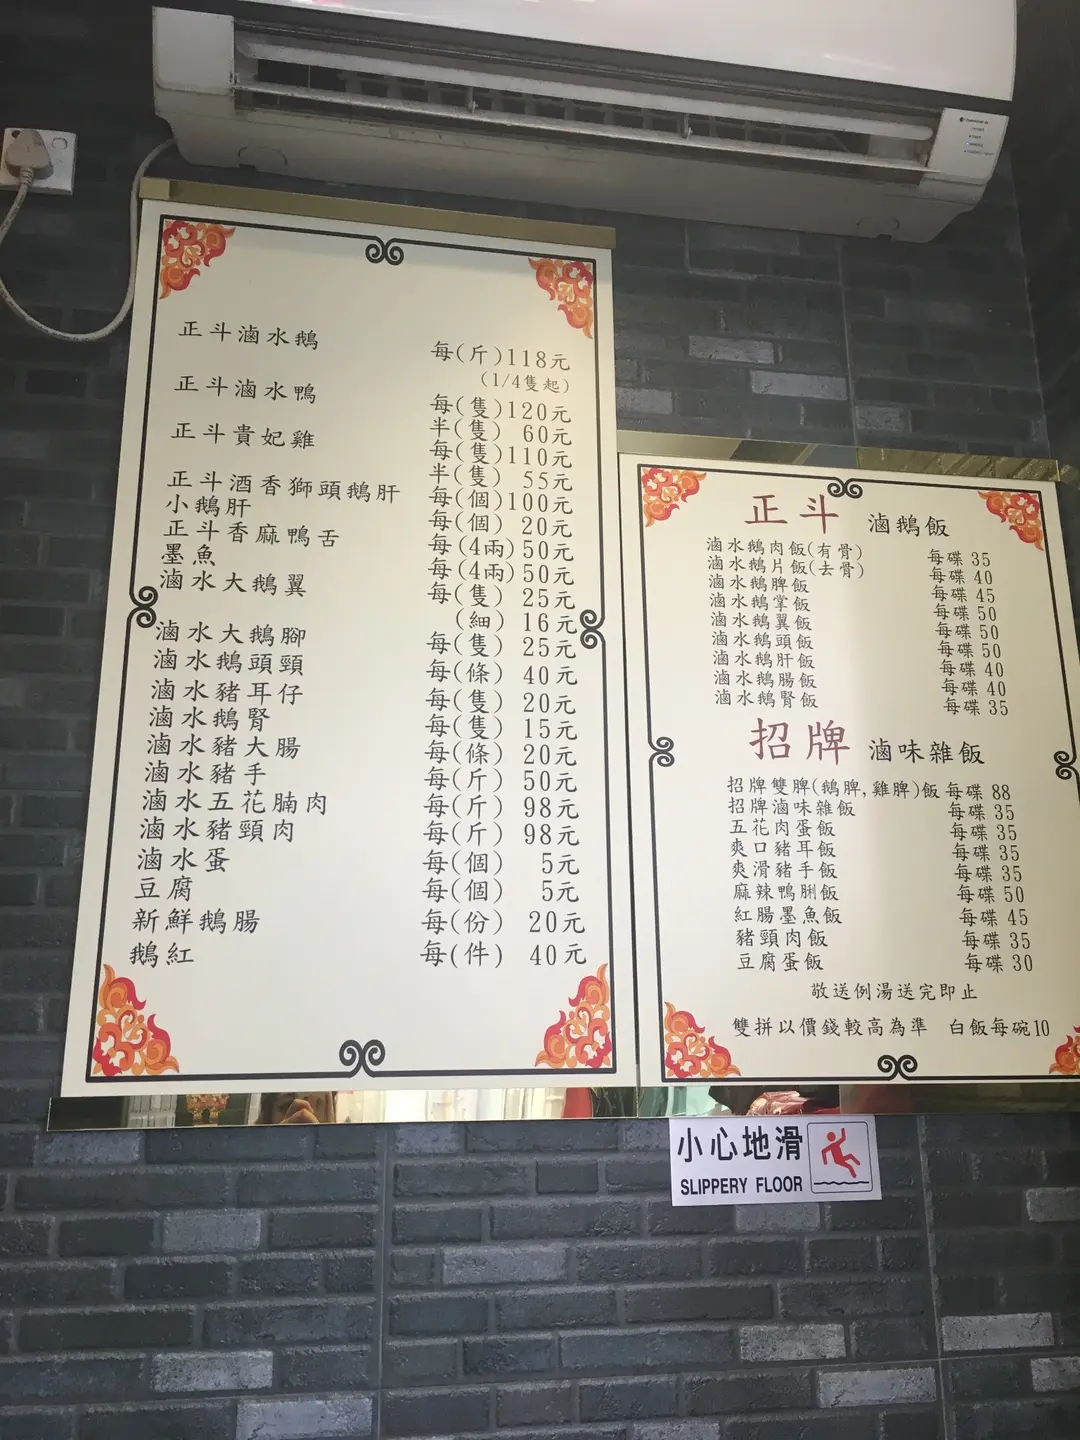 正斗滷水鵝 每(斤)118元
(1/4隻起)
正斗滷水鴨 每(隻)120元
半(隻) 60元
正斗貴妃雞 每(隻)110元
半(隻) 55元
正斗酒香獅頭鵝肝 每(個)100元
小鵝肝 每(個) 20元
正斗香麻鴨舌 每(4兩)50元
墨魚 每(4兩)50元
滷水大鵝翼 每(隻) 25元
(細) 16元
滷水大鵝腳 每(隻) 25元
滷水鵝頭頸 每(條) 40元
滷水豬耳仔 每(隻) 20元
滷水鵝腎 每(隻) 15元
滷水豬大腸 每(條) 20元
滷水豬手 每(斤) 50元
滷水五花腩肉 每(斤) 98元
滷水豬頸肉 每(斤) 98元
滷水蛋 每(個) 5元
豆腐 每(個) 5元
新鮮鵝腸 每(份) 20元
鵝紅 每(件) 40元
正斗 滷鵝飯
滷水鵝肉飯(有骨) 每碟 35
滷水鵝片飯(去骨) 每碟 40
滷水鵝脾飯 每碟 45
滷水鵝掌飯 每碟 50
滷水鵝翼飯 每碟 50
滷水鵝頭飯 每碟 50
滷水鵝肝飯 每碟 40
滷水鵝腸飯 每碟 40
滷水鵝腎飯 每碟 35
招牌 滷味雜飯
招牌雙脾(鵝脾,雞脾)飯 每碟 88
招牌滷味雜飯 每碟 35
五花肉蛋飯 每碟 35
爽口豬耳飯 每碟 35
爽滑豬手飯 每碟 35
麻辣鴨脷飯 每碟 50
紅腸墨魚飯 每碟 45
豬頸肉飯 每碟 35
豆腐蛋飯 每碟 30
敬送例湯送完即止
雙拼以價錢較高為準 白飯每碗10
小心地滑
SLIPPERY FLOOR